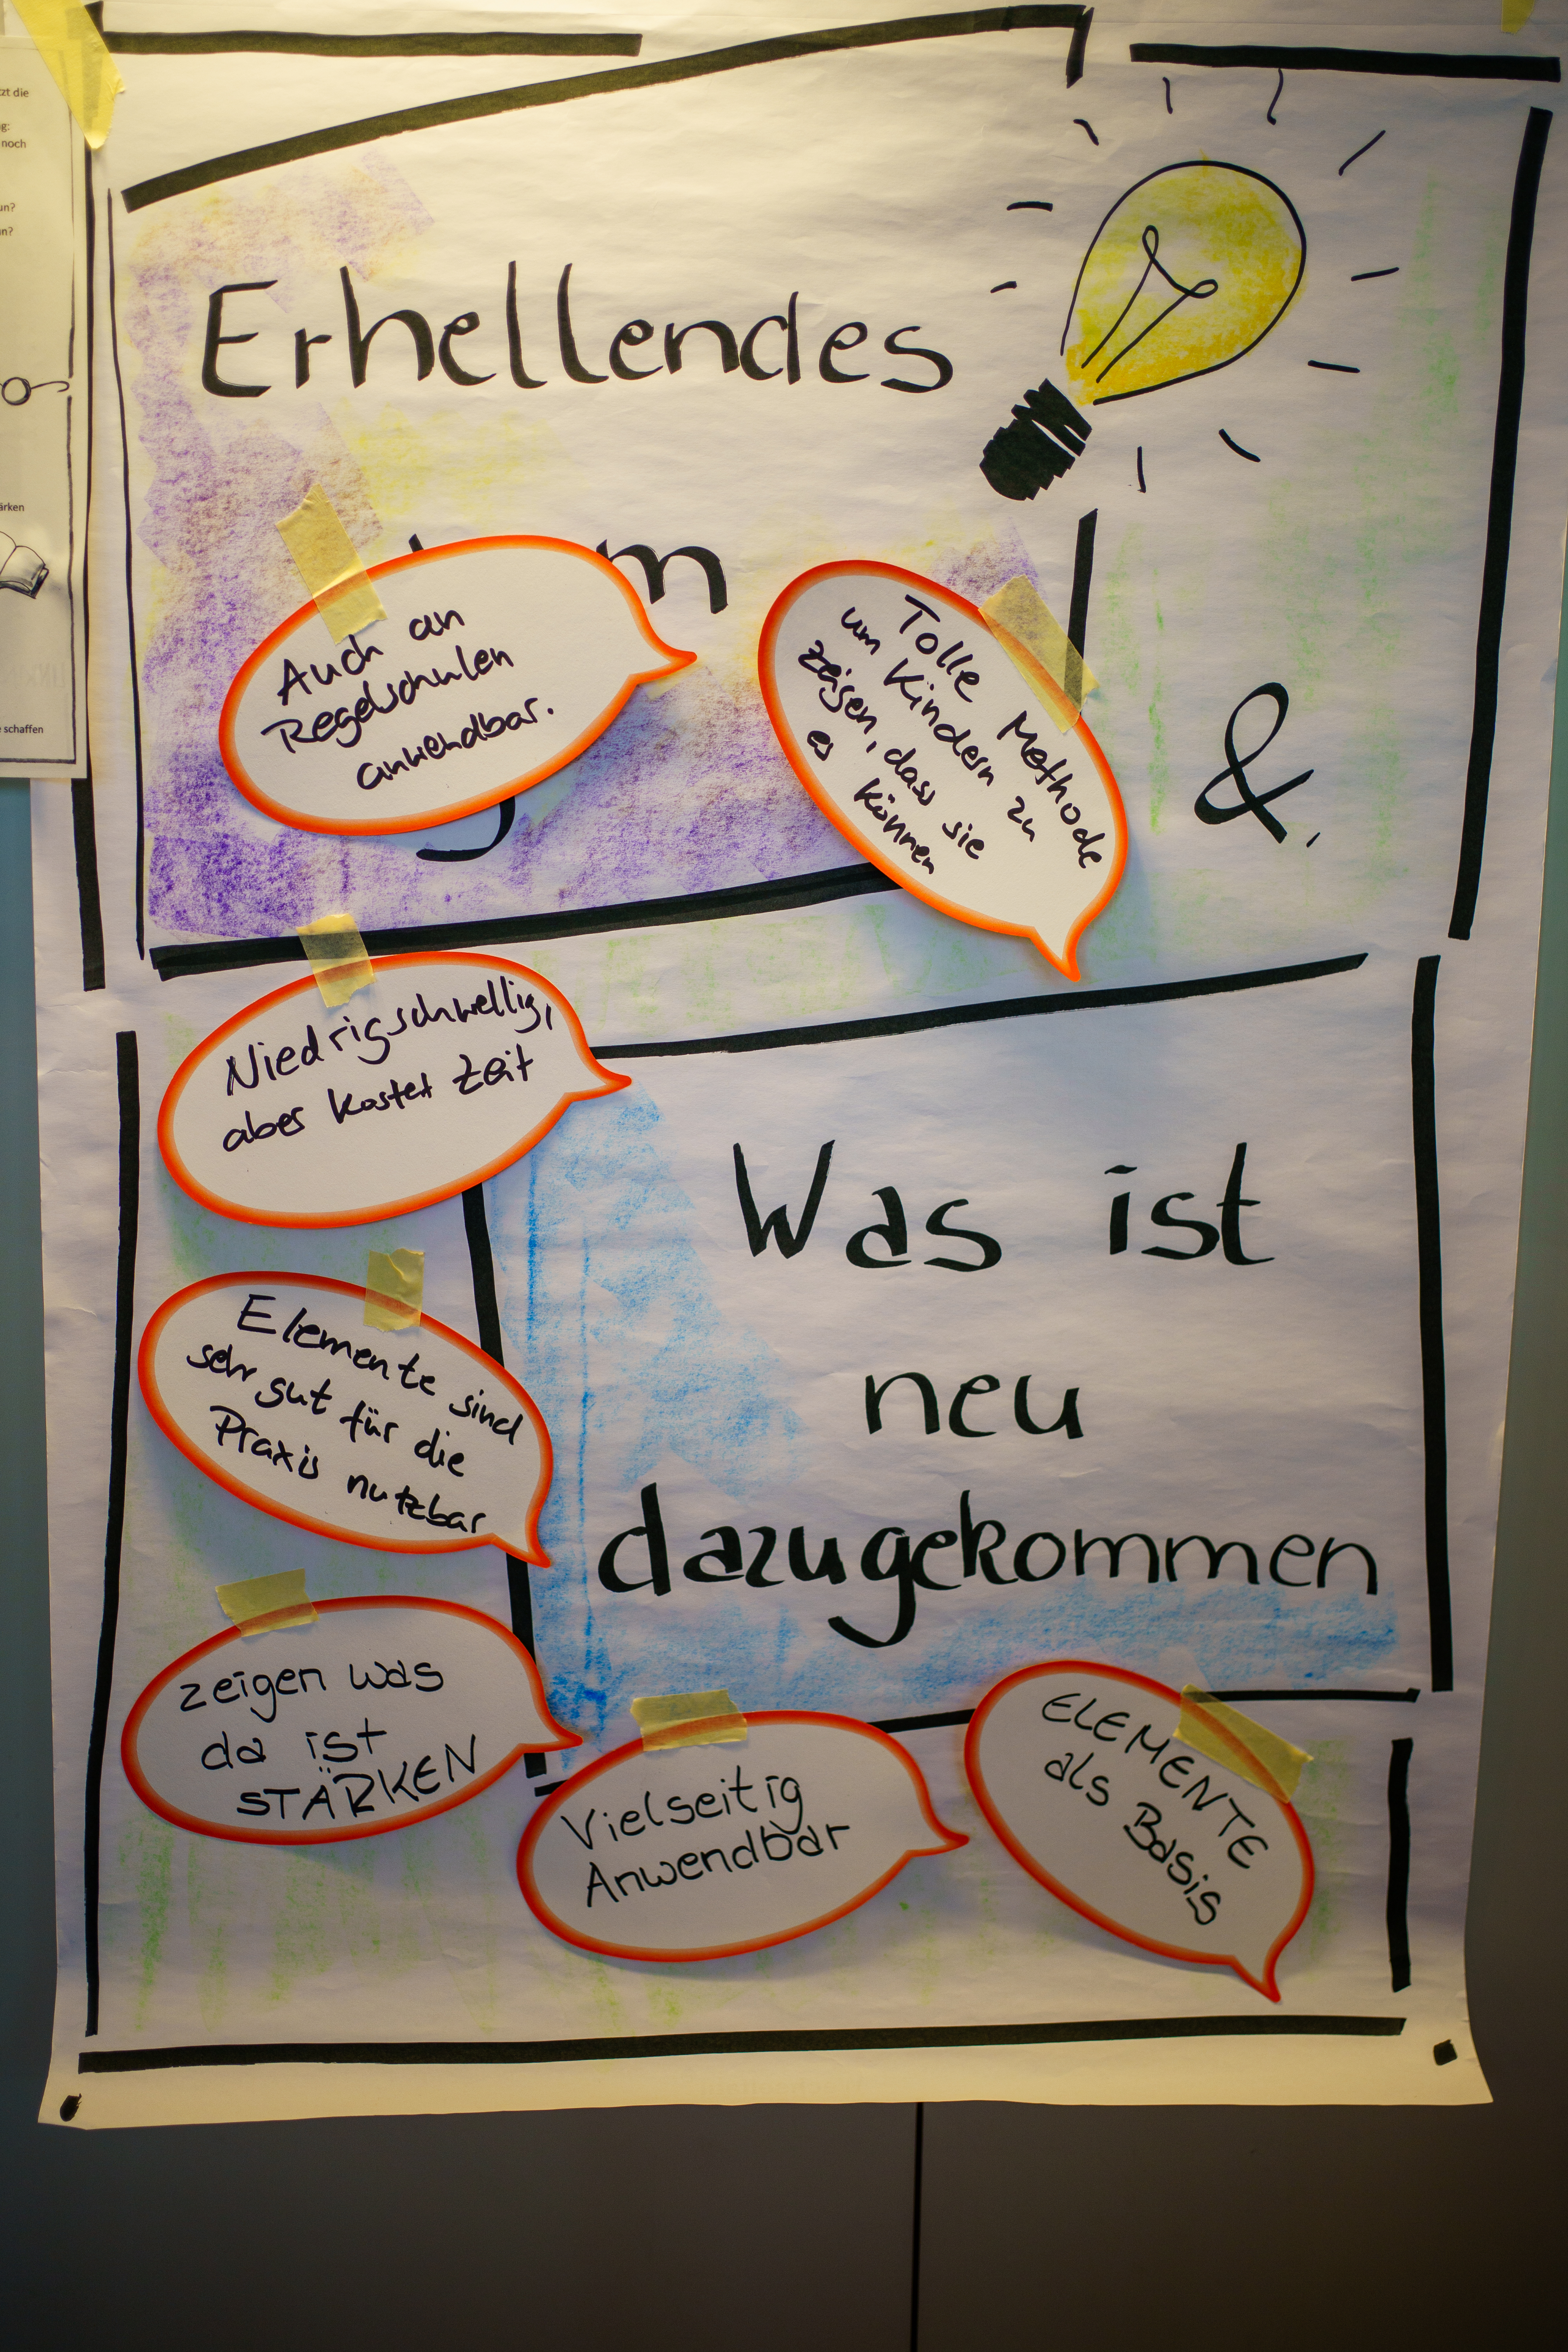 Erhellendes
Auch an
Regelschulen
anwendbar.
Tolle Methode
um Kindern zu
zeigen, dass sie
es können
&
Niedrigschwellig,
aber kostet Zeit
Was ist
neu
dazugekommen
Elemente sind
sehr gut für die
Praxis nutzbar
zeigen was
da ist
STÄRKEN
Vielseitig
Anwendbar
ELEMENTE
als Basis
noch
schaffen